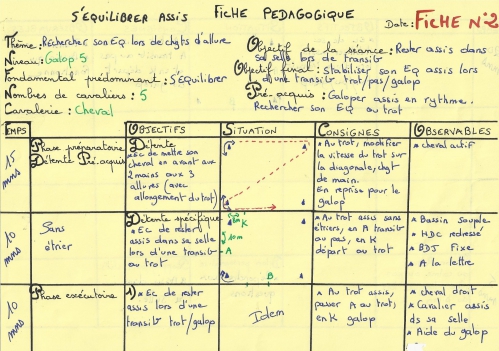 S'ÉQUILIBRER ASSIS FICHE PEDAGOGIQUE
Date: FICHE N°2
Thème: Rechercher son EQ lors de chgts d'allure
Niveau: Galop 5
Fondamental prédominant: s'équilibrer
Nombres de cavaliers: 5
Cavalerie: Cheval
Objectif de la séance: Rester assis dans
sa selle lors de transit°
Objectif final: stabiliser son EQ assis lors
d'une transit° trot/pas/galop
Pré-acquis: Galoper assis en rythme.
Rechercher son EQ au trot
TEMPS
OBJECTIFS
SITUATION
CONSIGNES
OBSERVABLES
15
mns
Phase préparatoire
Détente Pré-acquis
Détente
* EC de mettre son
cheval en avant aux
2 mains aux 3
allures (avec
allongement du trot)
* Au trot, modifier
la vitesse du trot sur
la diagonale, chgt
de main.
En reprise pour le
galop
* cheval actif
10
mns
Sans
étrier
Détente spécifique
* EC de rester
assis dans sa selle
lors d'une transit°
au trot
K
A
B
* Au trot assis sans
étriers, en A transit°
au pas, en K
départ au trot
* Bassin souple
* HDC redressé
* BDJ Fixe
* A la lettre
10
mns
Phase exécutoire
1) * EC de rester
assis lors d'une
transit° trot/galop
Idem
* Au trot assis,
passer A au trot,
en K galop
* cheval droit
* Cavalier assis
ds sa selle
* Aide du galop